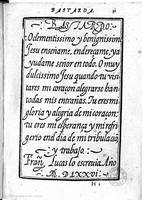 BASTARDA.
BASTARDA.
O clementissimo y benignissimo
Jesu enseñame, enderiçame, y a
yudame señor en todo. O muy
dulcissimo Jesu quando tu visi-
tares mi coraçon alegrarse han
todas mis entrañas. Tu eres mi
gloria y alegria de mi coraçon:
tu eres mi esperança y mi refri-
gerio en el dia de mi tribulaciõ
y trabajo:
Fran. Lucas lo escreuia. Año
D. M. D. LXXVI.